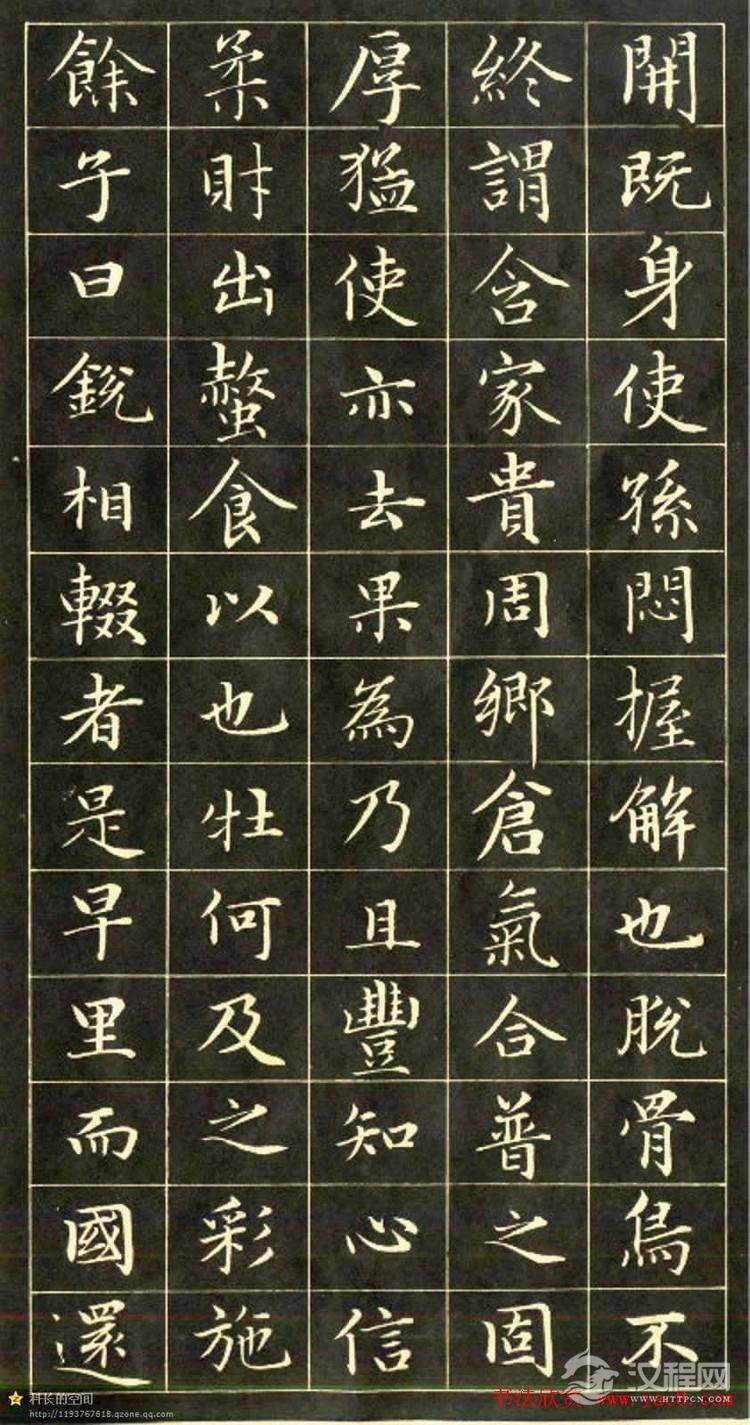 開既身使孫悶握解也脫骨鳥不
終謂含家貴周鄉倉氣合普之固
厚猛使亦去果為乃且豐知心信
柔財出螯食以也牡何及之彩施
餘子曰銳相輟者是早里而國還
科长的空间
http://1193767618.qzone.qq.com
书法欣赏
汉程网
WWW.HTTPCN.COM